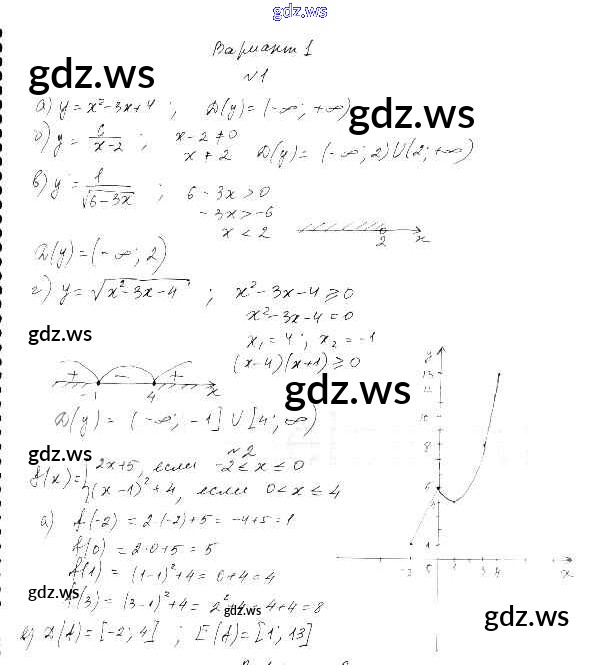 gdz.ws
Вариант 1
gdz.ws
№1
gdz.ws
а) y = x² - 3x + 4 ; D(y) = (-∞; +∞)
б) y = 6/(x-2) ; x - 2 ≠ 0
x ≠ 2 D(y) = (-∞; 2) U (2; +∞)
в) y = 1/√(6-3x) ; 6 - 3x > 0
-3x > -6
x < 2
2 x
D(y) = (-∞; 2)
г) y = √(x² - 3x - 4) ; x² - 3x - 4 ≥ 0
gdz.ws
x² - 3x - 4 = 0
x₁ = 4 ; x₂ = -1
(x-4)(x+1) ≥ 0
+ - +
-1 4 x
gdz.ws
D(y) = (-∞; -1] U [4; ∞)
gdz.ws
№2
f(x) = { 2x+5, если -2 ≤ x ≤ 0
(x-1)² + 4, если 0 < x ≤ 4
а) f(-2) = 2·(-2)+5 = -4+5 = 1
f(0) = 2·0+5 = 5
f(1) = (1-1)²+4 = 0+4 = 4
gdz.ws
f(3) = (3-1)²+4 = 2²+4 = 4+4 = 8
gdz.ws
gdz.ws
D(f) = [-2; 4] ; E(f) = [1; 13]
y
13
10
8
1
-2 0 1 2 3 4 x